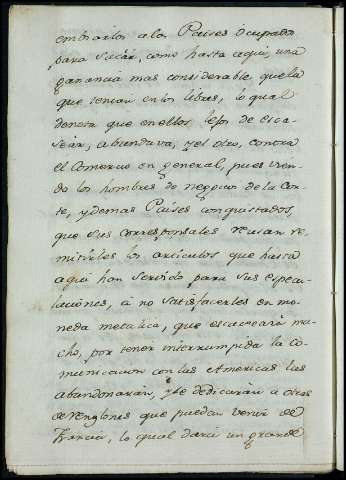 embiarlos a los Paises Ocupados
para sacar, como hasta aqui, una
ganancia mas considerable que la
que tenian en los libres, lo qual
denota que en ellos lejos de esca-
sear, abundava, y el otro, contra
el Comercio en general, pues vien-
do los hombres de negocios de la Cor-
te, y demas Paises conquistados,
que sus corresponsales reusan re-
mitirles los articulos que hasta
aqui han servido para sus especu-
laciones, á no satisfacerles en mo-
neda metalica, que escaseará mu-
cho, por tener interrumpida la Co-
municacion con las Americas las
abandonarán, y se dedicarán a otros
renglones que puedan venir de
Francia, lo qual dará un grande